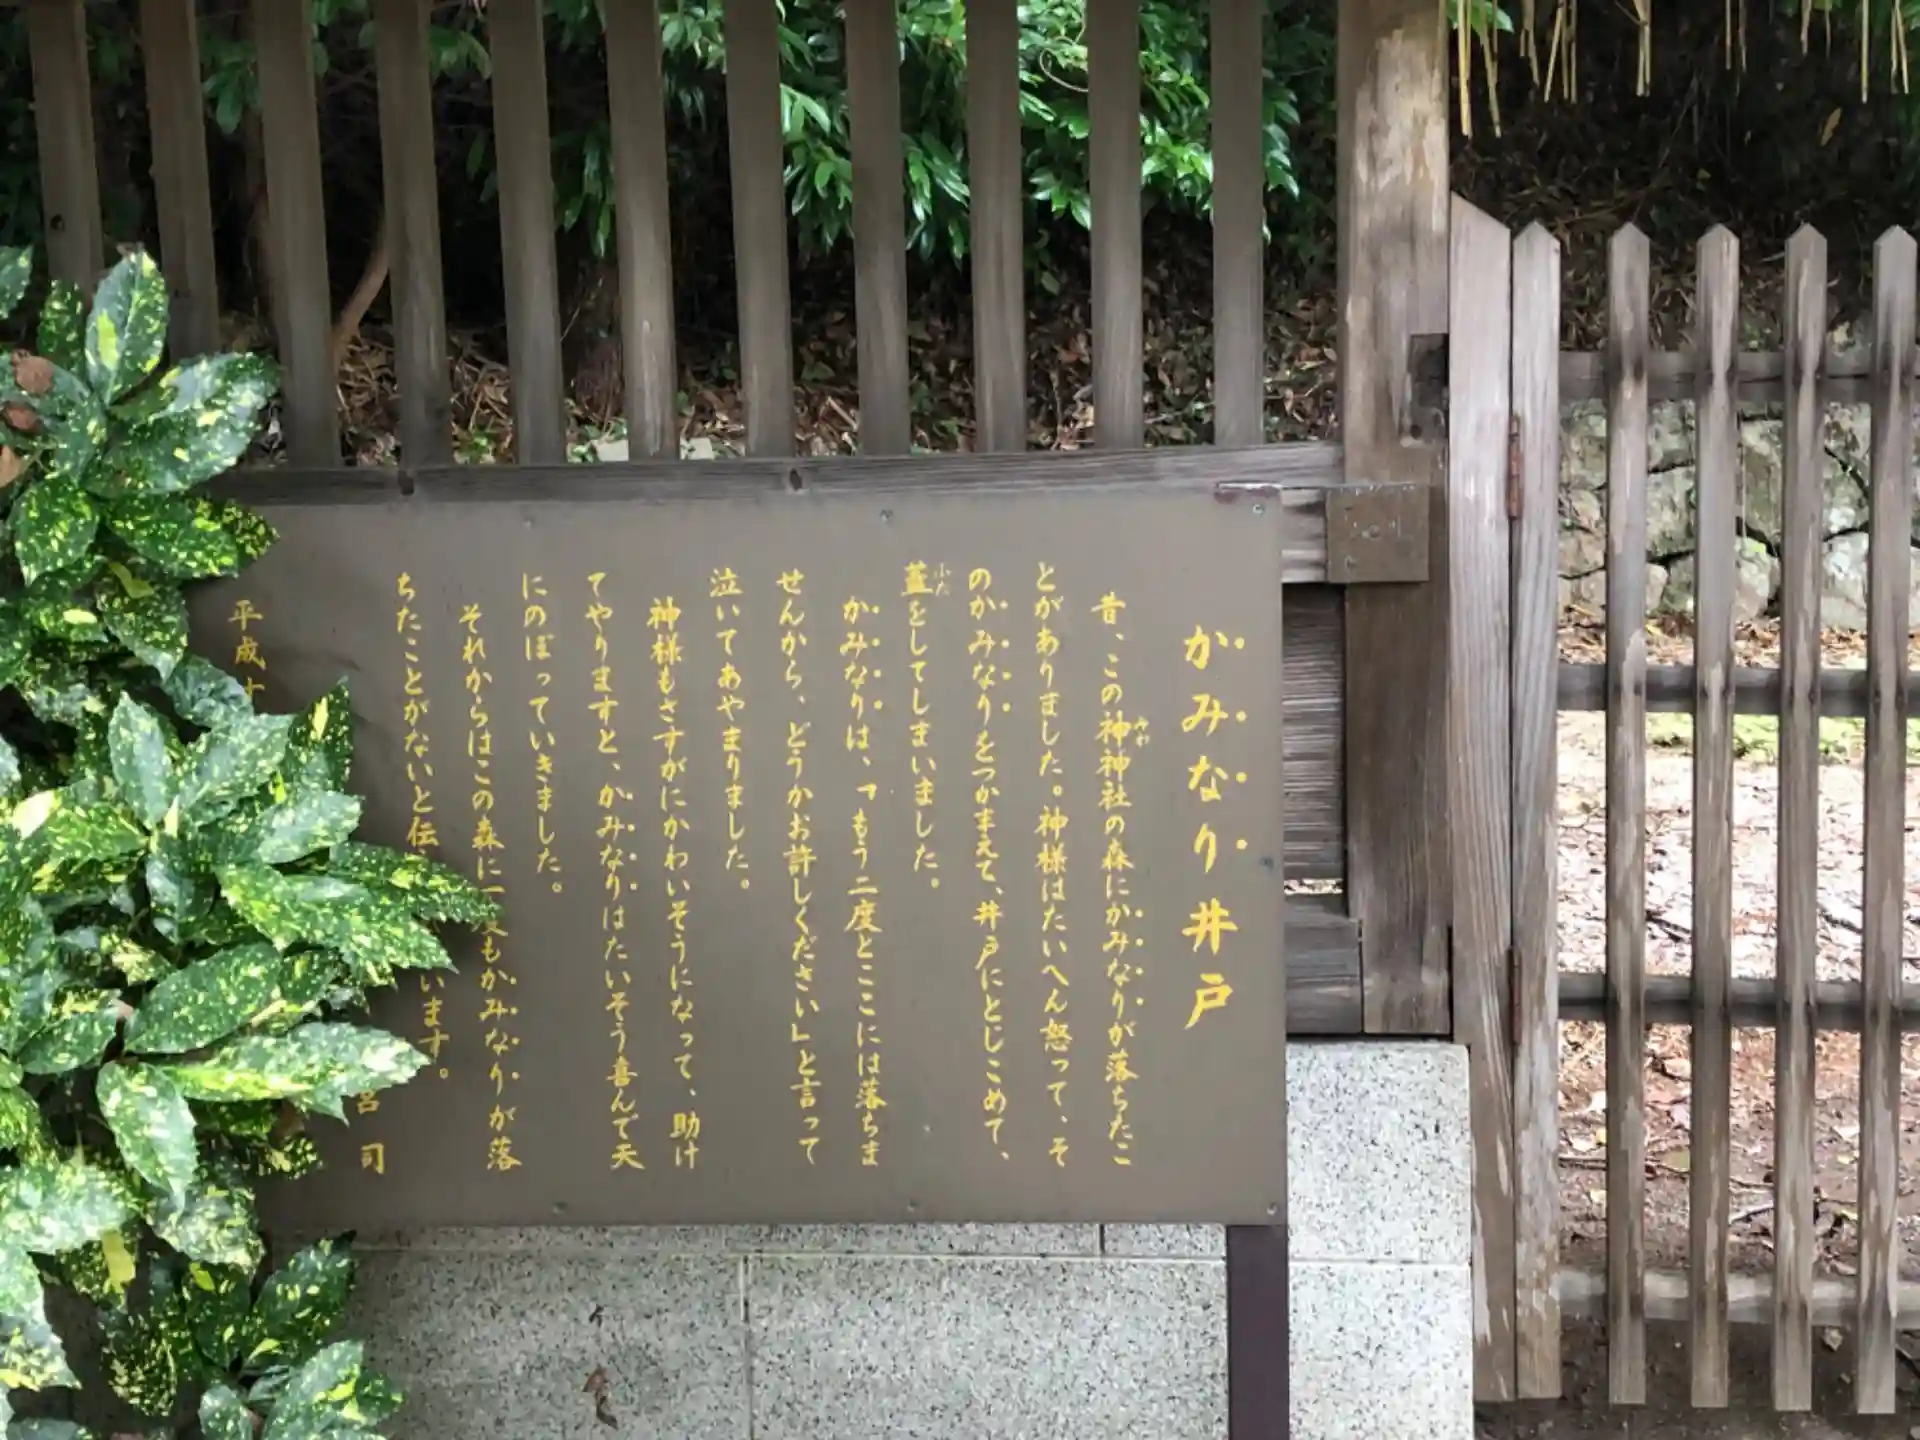 かみなり井戸
昔、この神神社の森にかみなりが落ちたこ
とがありました。神様はたいへん怒って、そ
のかみなりをつかまえて、井戸にとじこめて、
蓋をしてしまいました。
かみなりは、「もう二度とここには落ちま
せんから、どうかお許しください」と言って
泣いてあやまりました。
神様もさすがにかわいそうになって、助け
てやりますと、かみなりはたいそう喜んで天
にのぼっていきました。
それからはこの森に一度もかみなりが落
ちたことがないと伝 います。
平成十 宮司